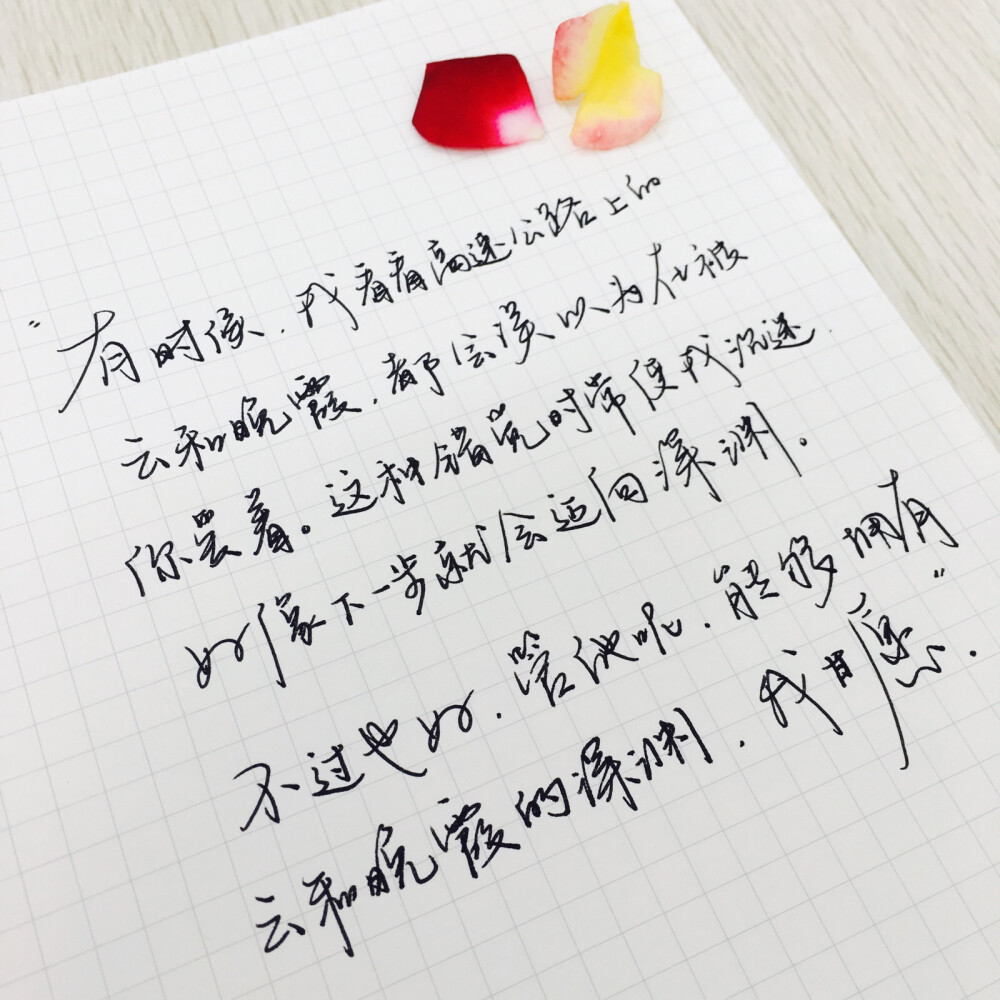 “有时候,我看着高速公路上的
云和晚霞,都会误以为在被
你爱着。这种错觉时常使我沉迷,
好像下一步就会迈向深渊。
不过也好,管他呢,能够拥有
云和晚霞的深渊,我情愿.”